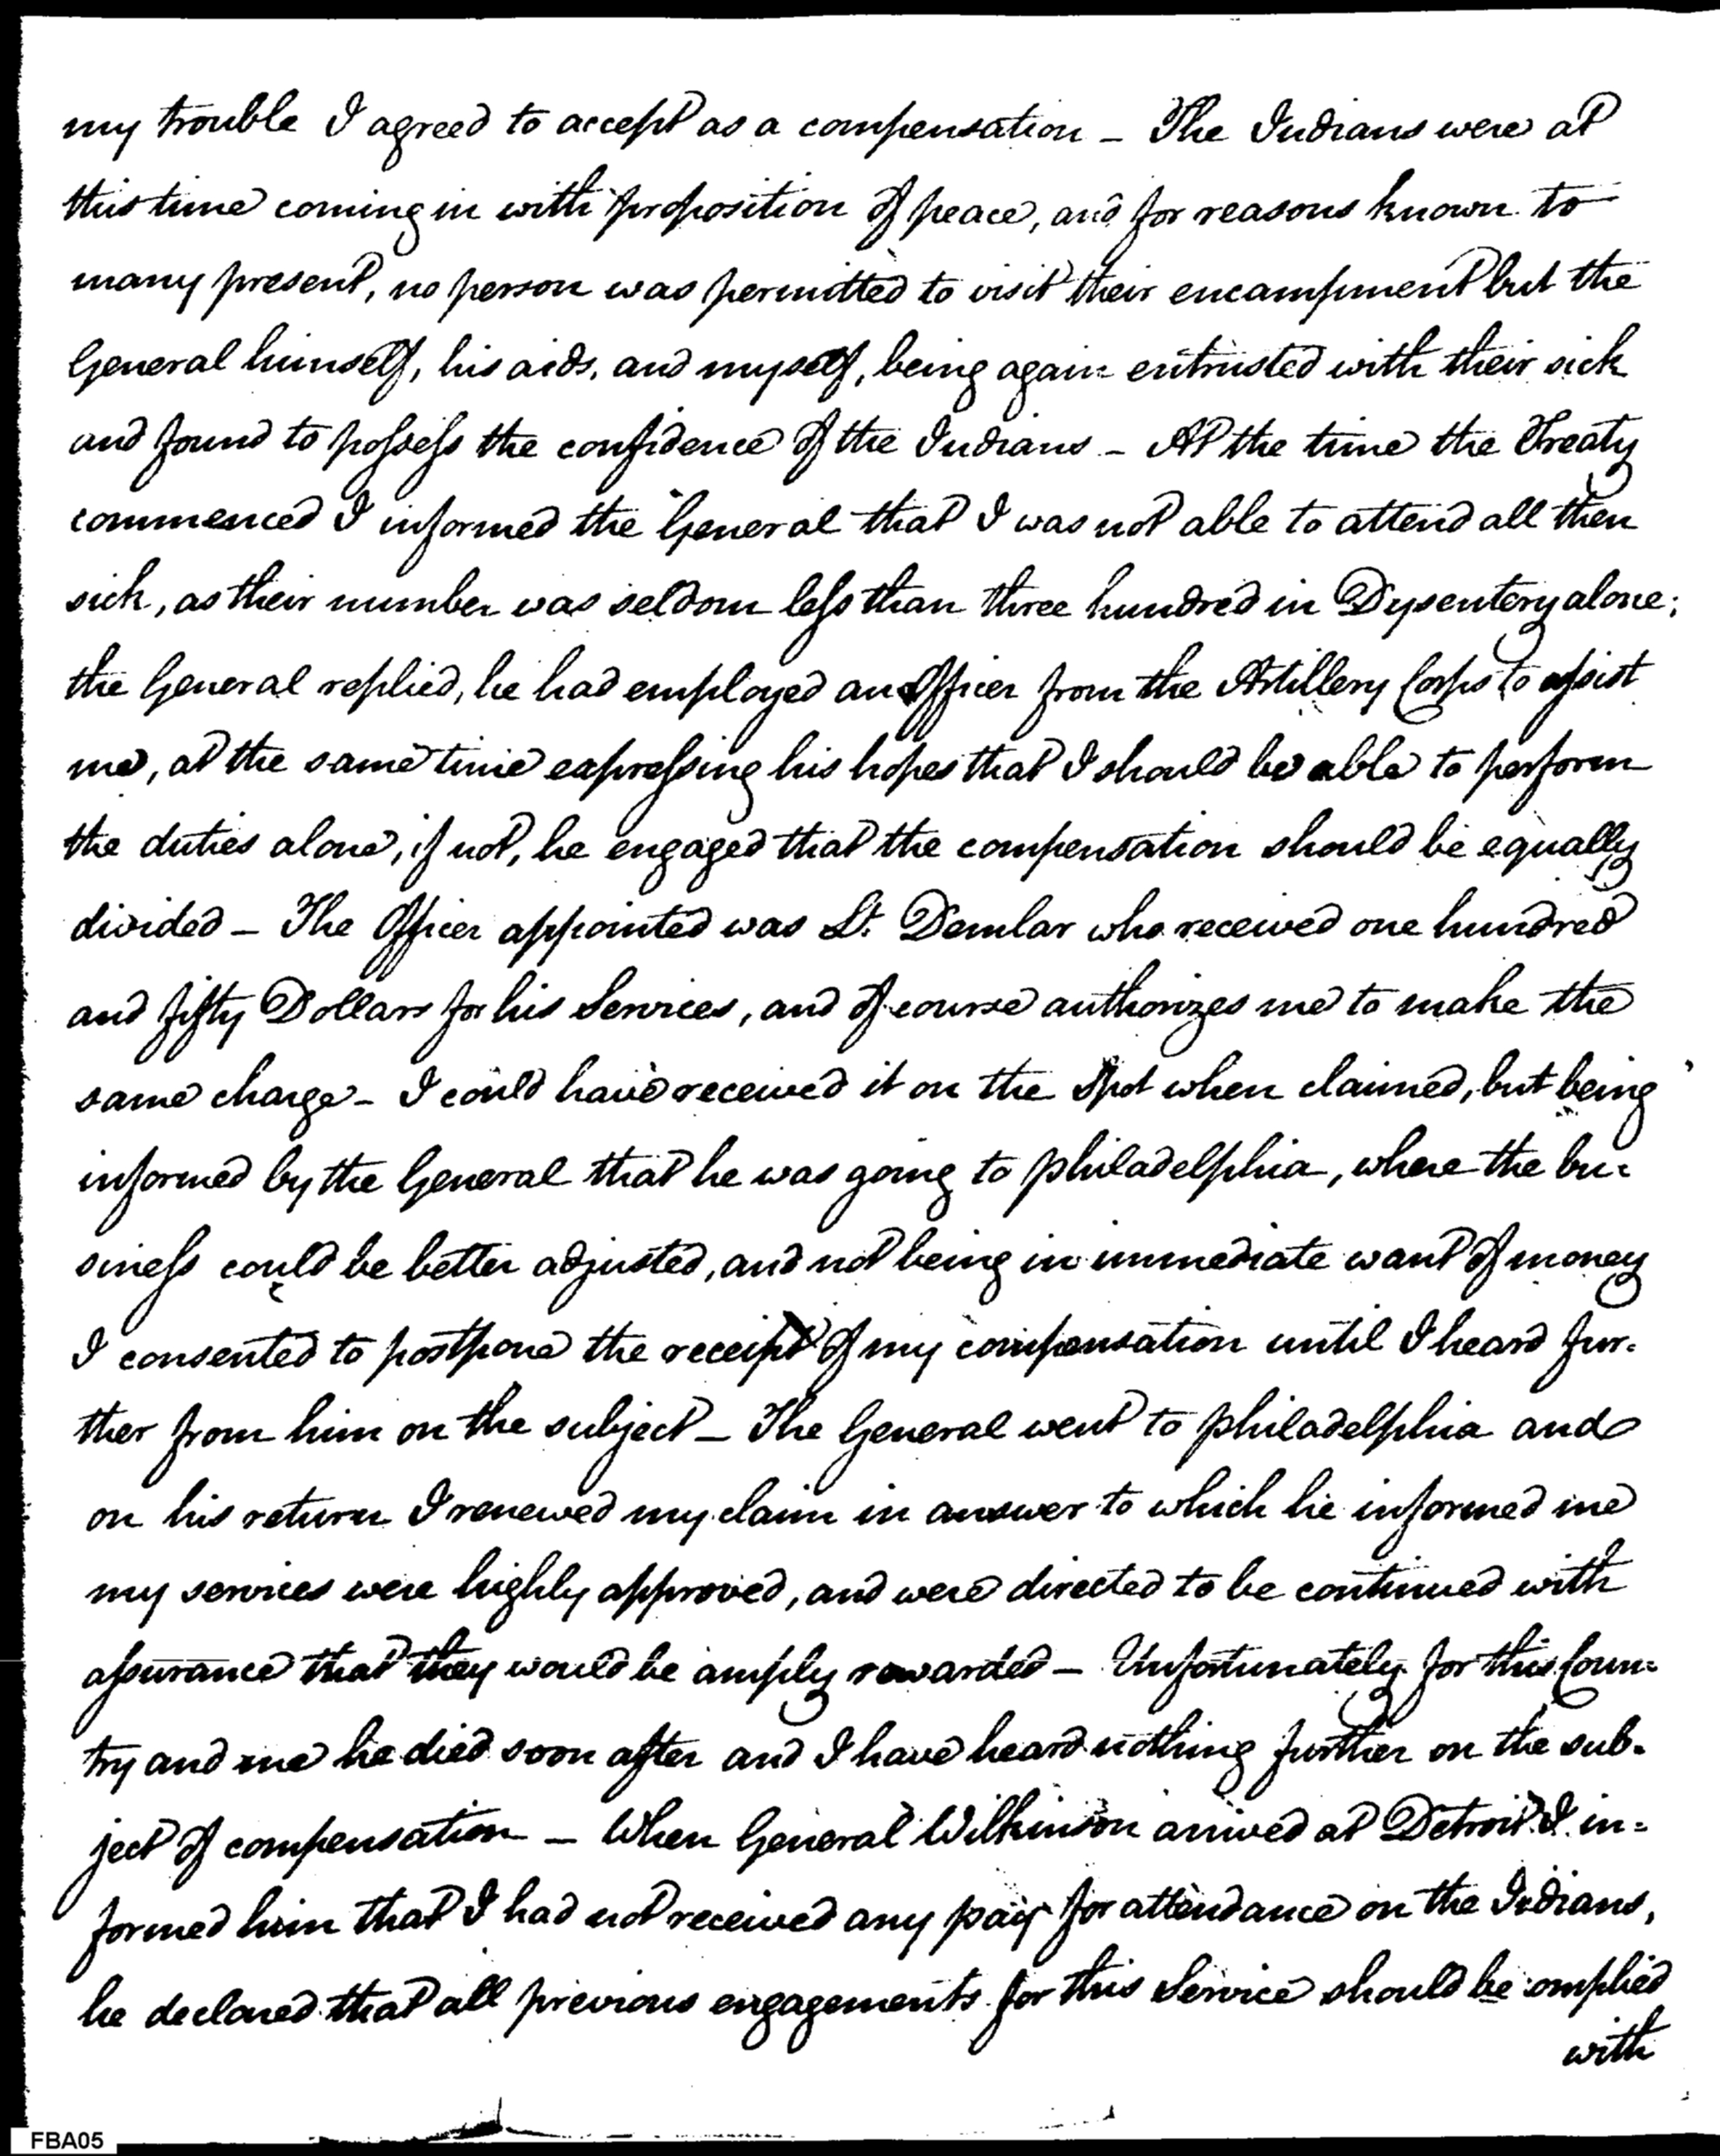 my trouble I agreed to accept as a compensation – The Indians were at
this time coming in with proposition of peace, and for reasons known to
many present, no person was permitted to visit their encampment but the
General himself, his aids, and myself, being again entrusted with their sick
and found to possess the confidence of the Indians – At the time the Treaty
commenced I informed the General that I was not able to attend all then
sick, as their number was seldom less than three hundred in Dysentery alone;
the General replied, he had employed an Officer from the Artillery Corps to assist
me, at the same time expressing his hopes that I should be able to perform
the duties alone, if not, he engaged that the compensation should be equally
divided – The Officer appointed was Lt. Demlar who received one hundred
and fifty Dollars for his Services, and of course authorizes me to make the
same charge – I could have received it on the Spot when claimed, but being
informed by the General that he was going to Philadelphia, where the bu-
siness could be better adjusted, and not being in immediate want of money
I consented to postpone the receipt of my compensation until I heard fur-
ther from him on the subject – The General went to Philadelphia and
on his return I renewed my claim in answer to which he informed me
my services were highly approved, and were directed to be continued with
assurance that they would be amply rewarded – Unfortunately for this Coun=
try and me he died soon after and I have heard nothing further on the sub-
ject of compensation – When General Wilkinson arrived at Detroit I in=
formed him that I had not received any pay for attendance on the Indians,
he declared that all previous engagements for this Service should be omplied
with
FBA05